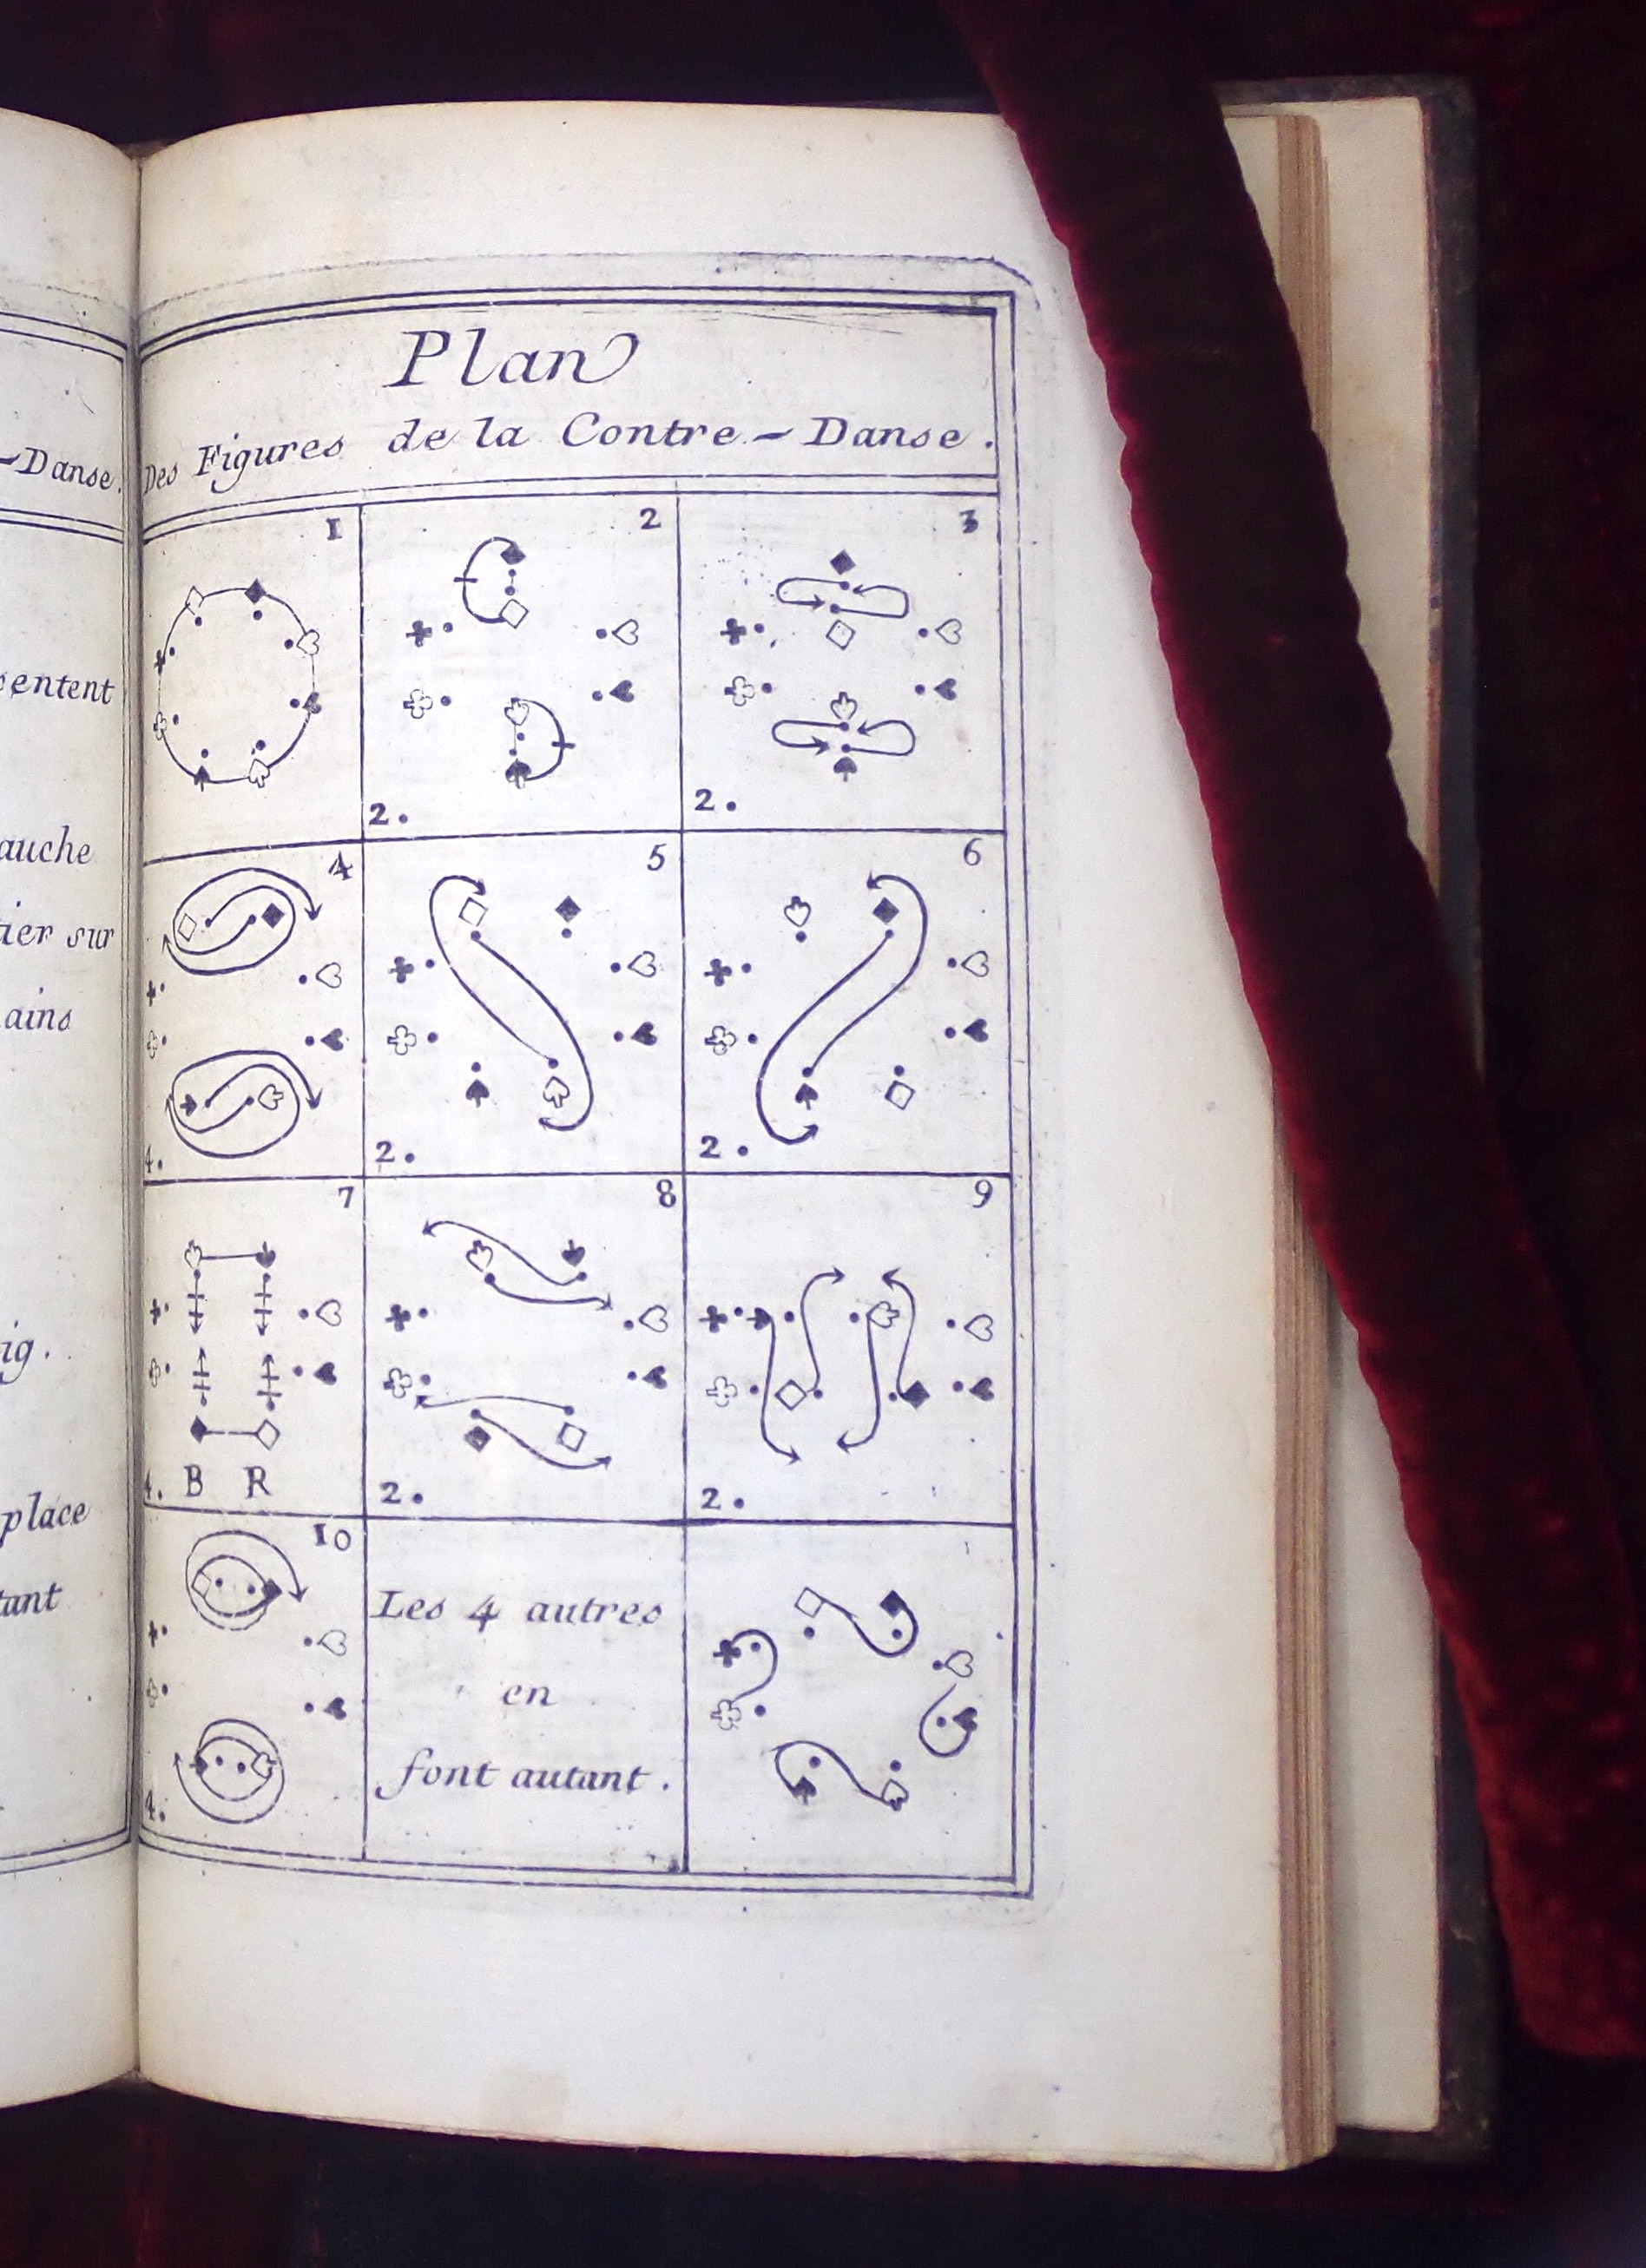 -Danse.
sentent
auche
tier sur
ains
ig.
place
tant
Plan
Des Figures de la Contre-Danse.
1
2
2.
3
2.
4
4.
5
2.
6
2.
7
4. B R
8
2.
9
2.
10
4.
Les 4 autres
en
font autant.